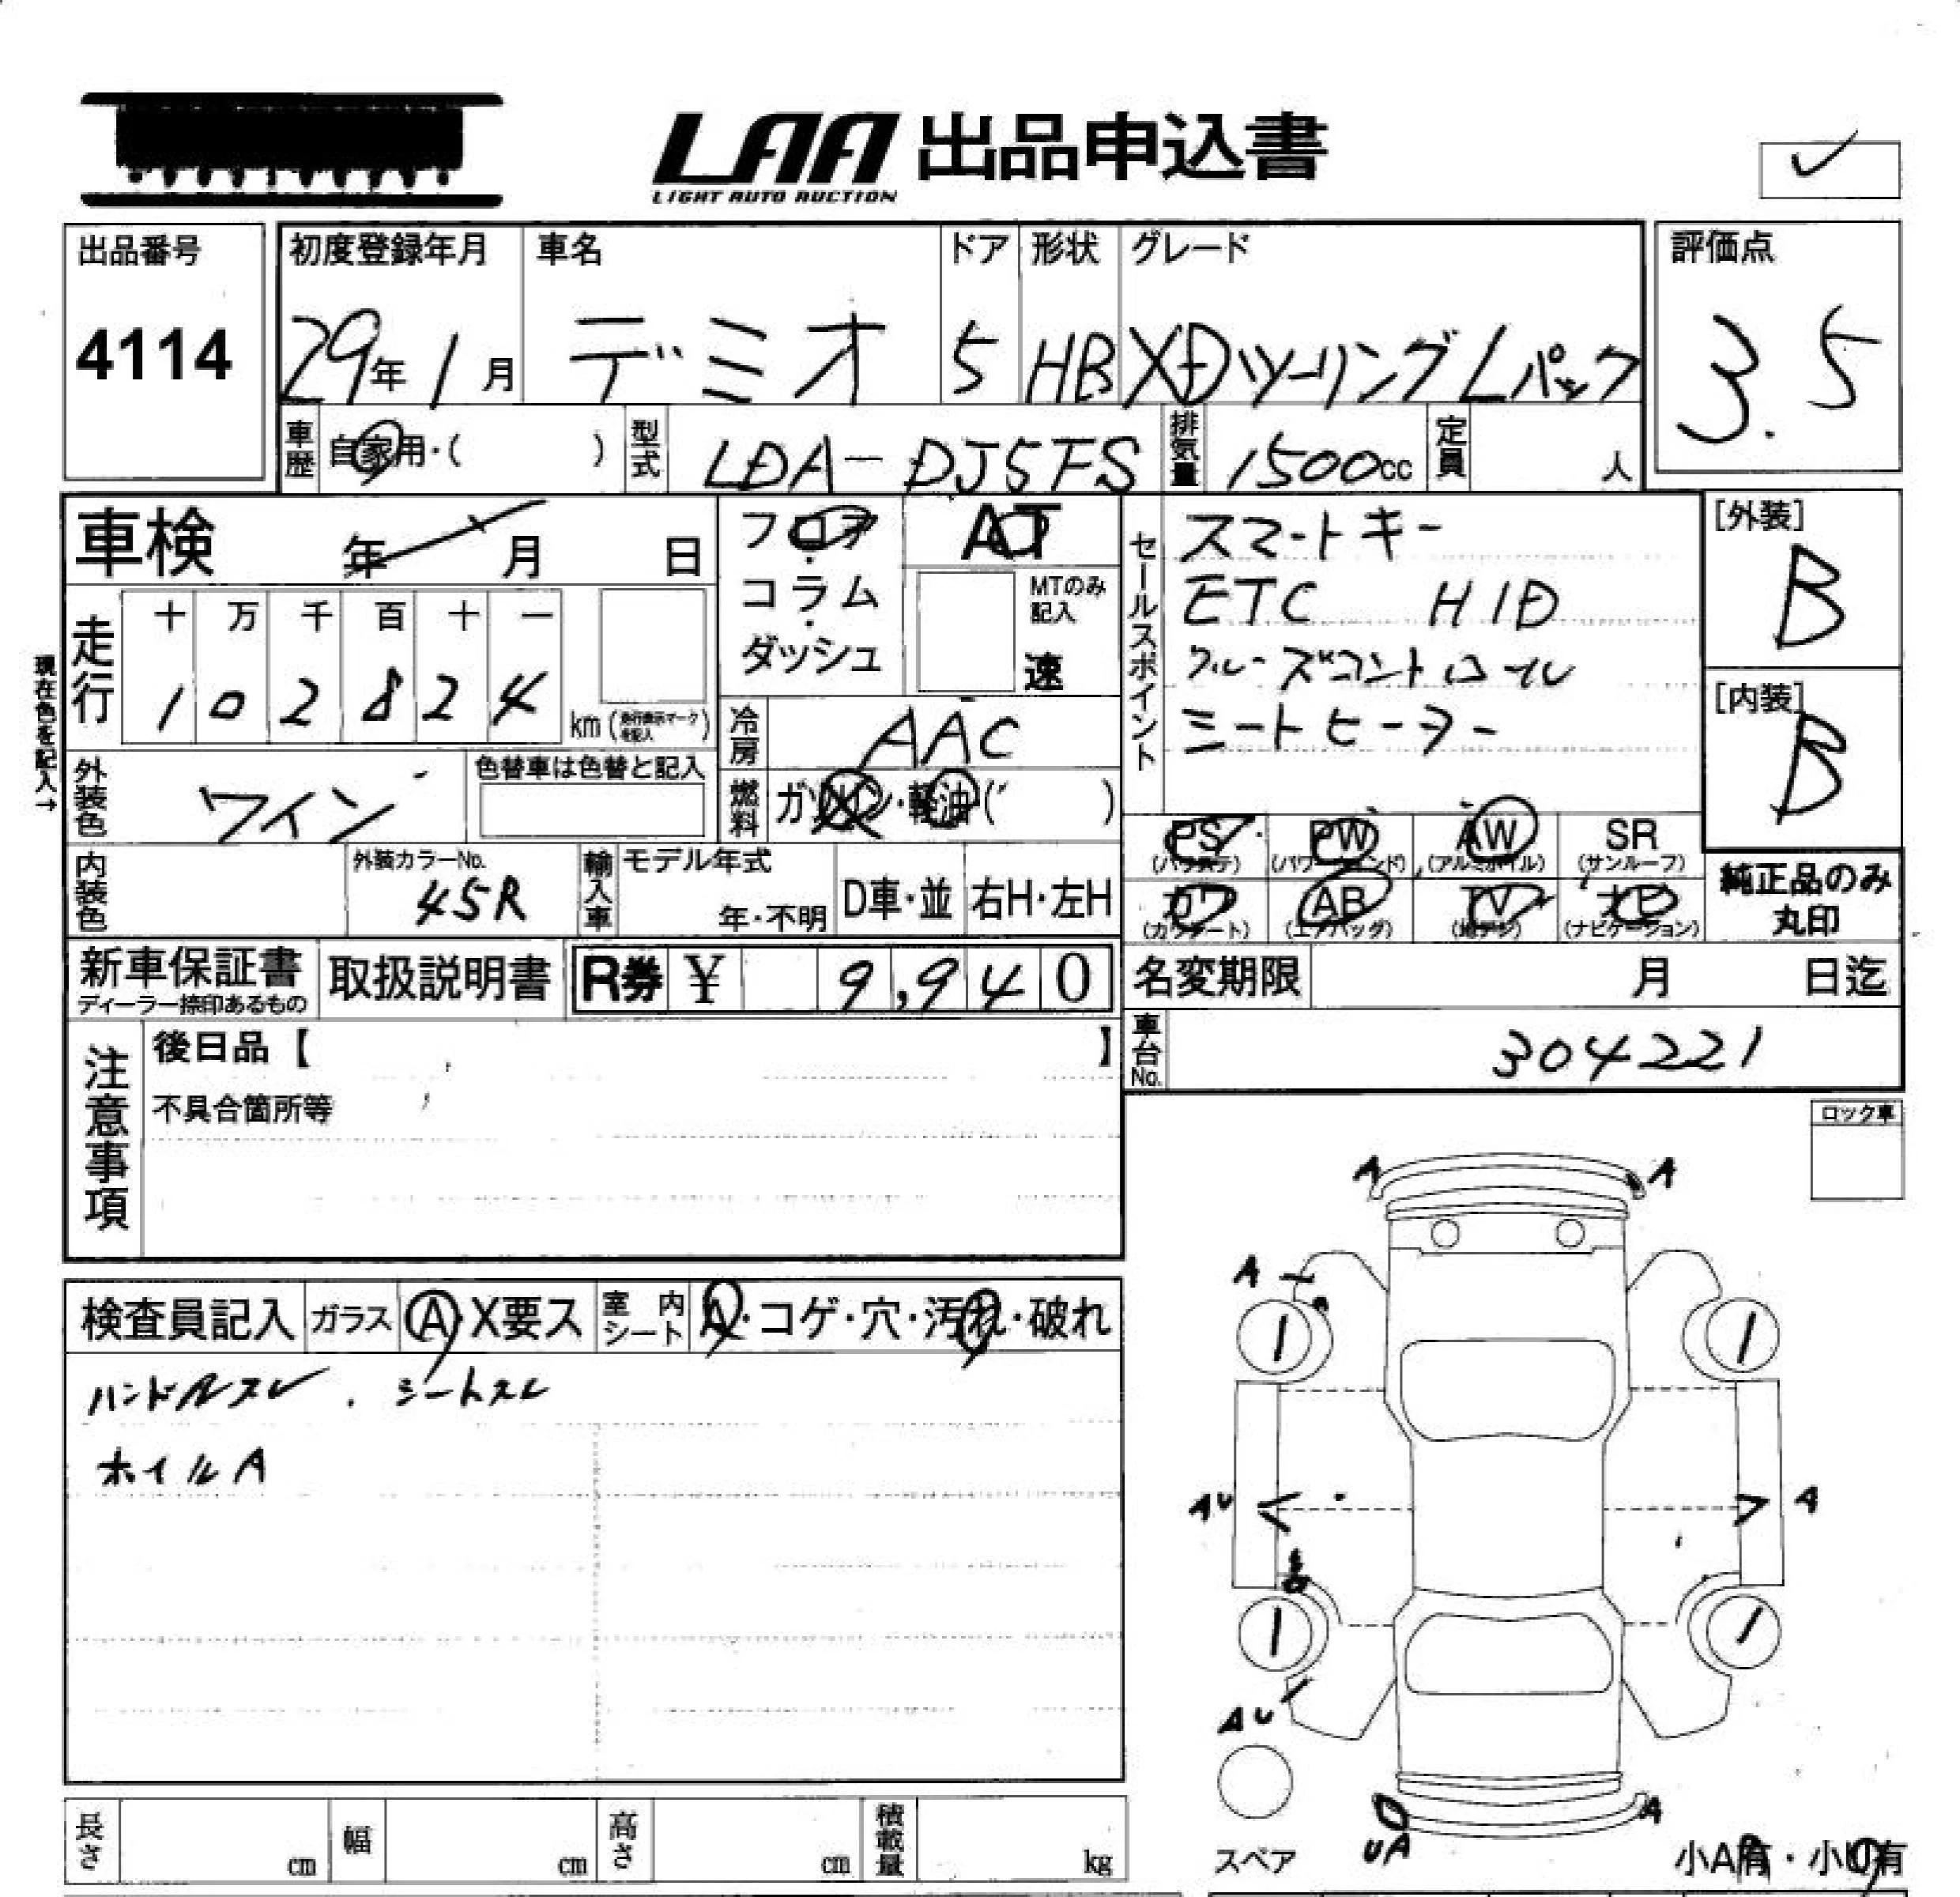 LAA 出品申込書
LIGHT AUTO AUCTION
✓
出品番号
4114
初度登録年月 車名 ドア 形状 グレード
29年1月 デミオ 5 HB XDツーリングLパック
評価点
3.5
車歴 自家用・( ) 型式 LDA-DJ5FS 排気量 1500cc 定員 人
車検 年 月 日
フロア・コラム・ダッシュ
AT
MTのみ記入
速
セールスポイント
スマートキー
ETC HID
クルーズコントロール
シートヒーター
[外装]
B
[内装]
B
現在色を記入→
走行 十 万 千 百 十 一
1 0 2 8 2 4 km (走行表示マークを記入)
冷房 AAC
外装色 ワイン 色替車は色替と記入
燃料 ガソリン・軽油・( )
内装色 外装カラーNo. 45R
輸入車 モデル年式 年・不明 D車・並 右H・左H
PS (パワステ) PW (パワーウィンド) AW (アルミホイル) SR (サンルーフ)
カワ (カワシート) AB (エアバッグ) TV (地デジ) ナビ (ナビゲーション)
純正品のみ丸印
新車保証書 ディーラー捺印あるもの 取扱説明書 R券 ¥ 9,940
名変期限 月 日迄
車台No. 304221
注意事項
後日品【 】
不具合箇所等
ロック車
検査員記入 ガラス A・X要ス 室内シート A・コゲ・穴・汚れ・破れ
ハンドルスレ . シートスレ
ホイルA
A A
A
1 1
AU A
1 1
AU
UA A
スペア
小A有・小U有
長さ cm 幅 cm 高さ cm 積載量 kg